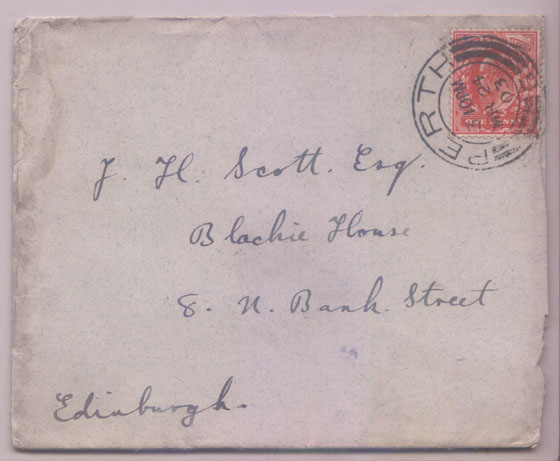 PERTH
10 PM
24
03
ONE PENNY
J. H. Scott. Esq.
Blackie House
8. N. Bank. Street
Edinburgh.